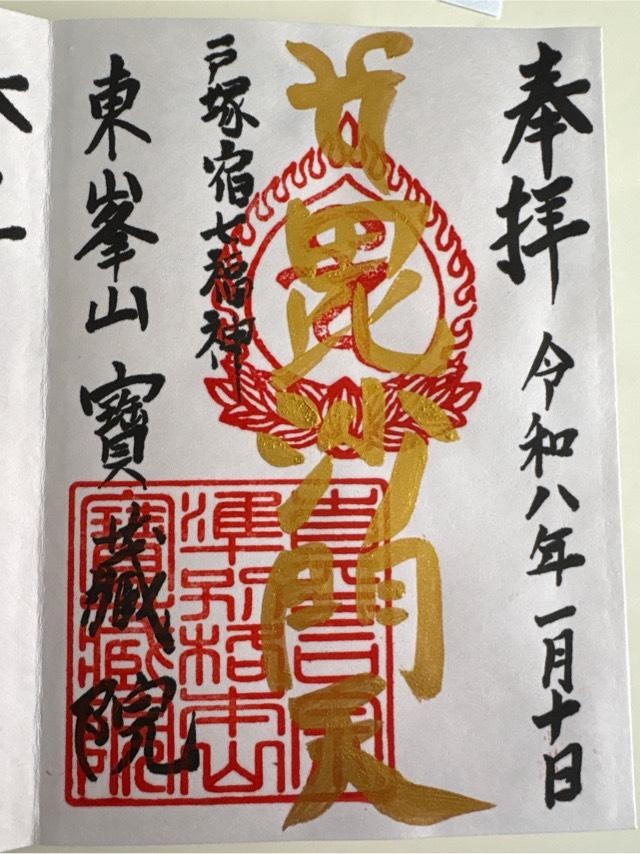 奉拝
令和八年一月十日
毘沙門天
戸塚宿七福神
東峯山 寶蔵院
準別格本山
寶蔵院